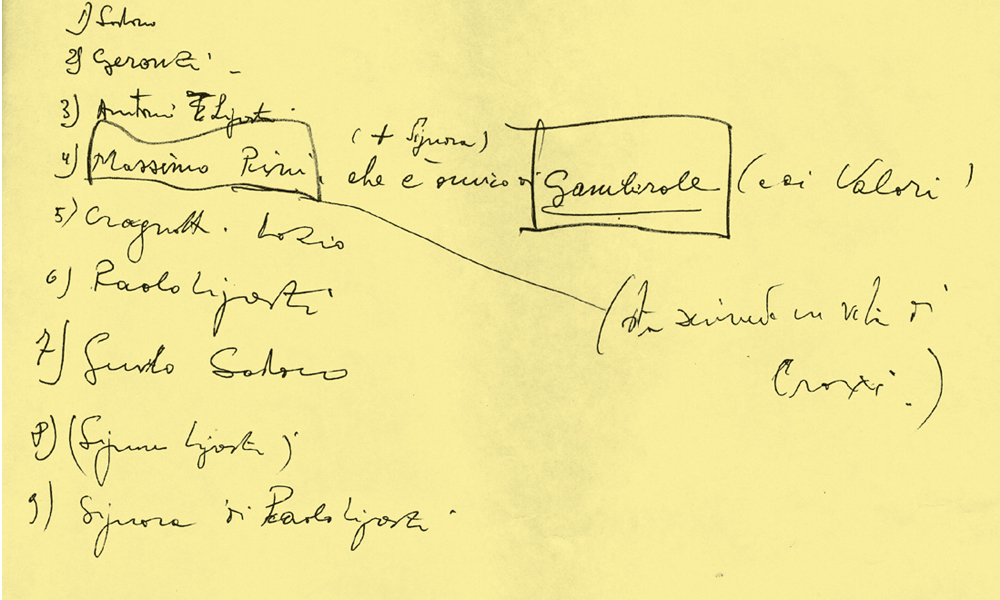 1) Sodano
2) Geronzi
3) Antonio Ligresti
(+ Signora)
4) Massimo Pini che è amico di Gamberale (ex di Valori)
5) Cragnotti. Lazio
6) Paolo Ligresti
(sta scrivendo un di
Craxi.)
7) Guido Sodano
8) (Signora Ligresti)
9) Signora di Paolo Ligresti